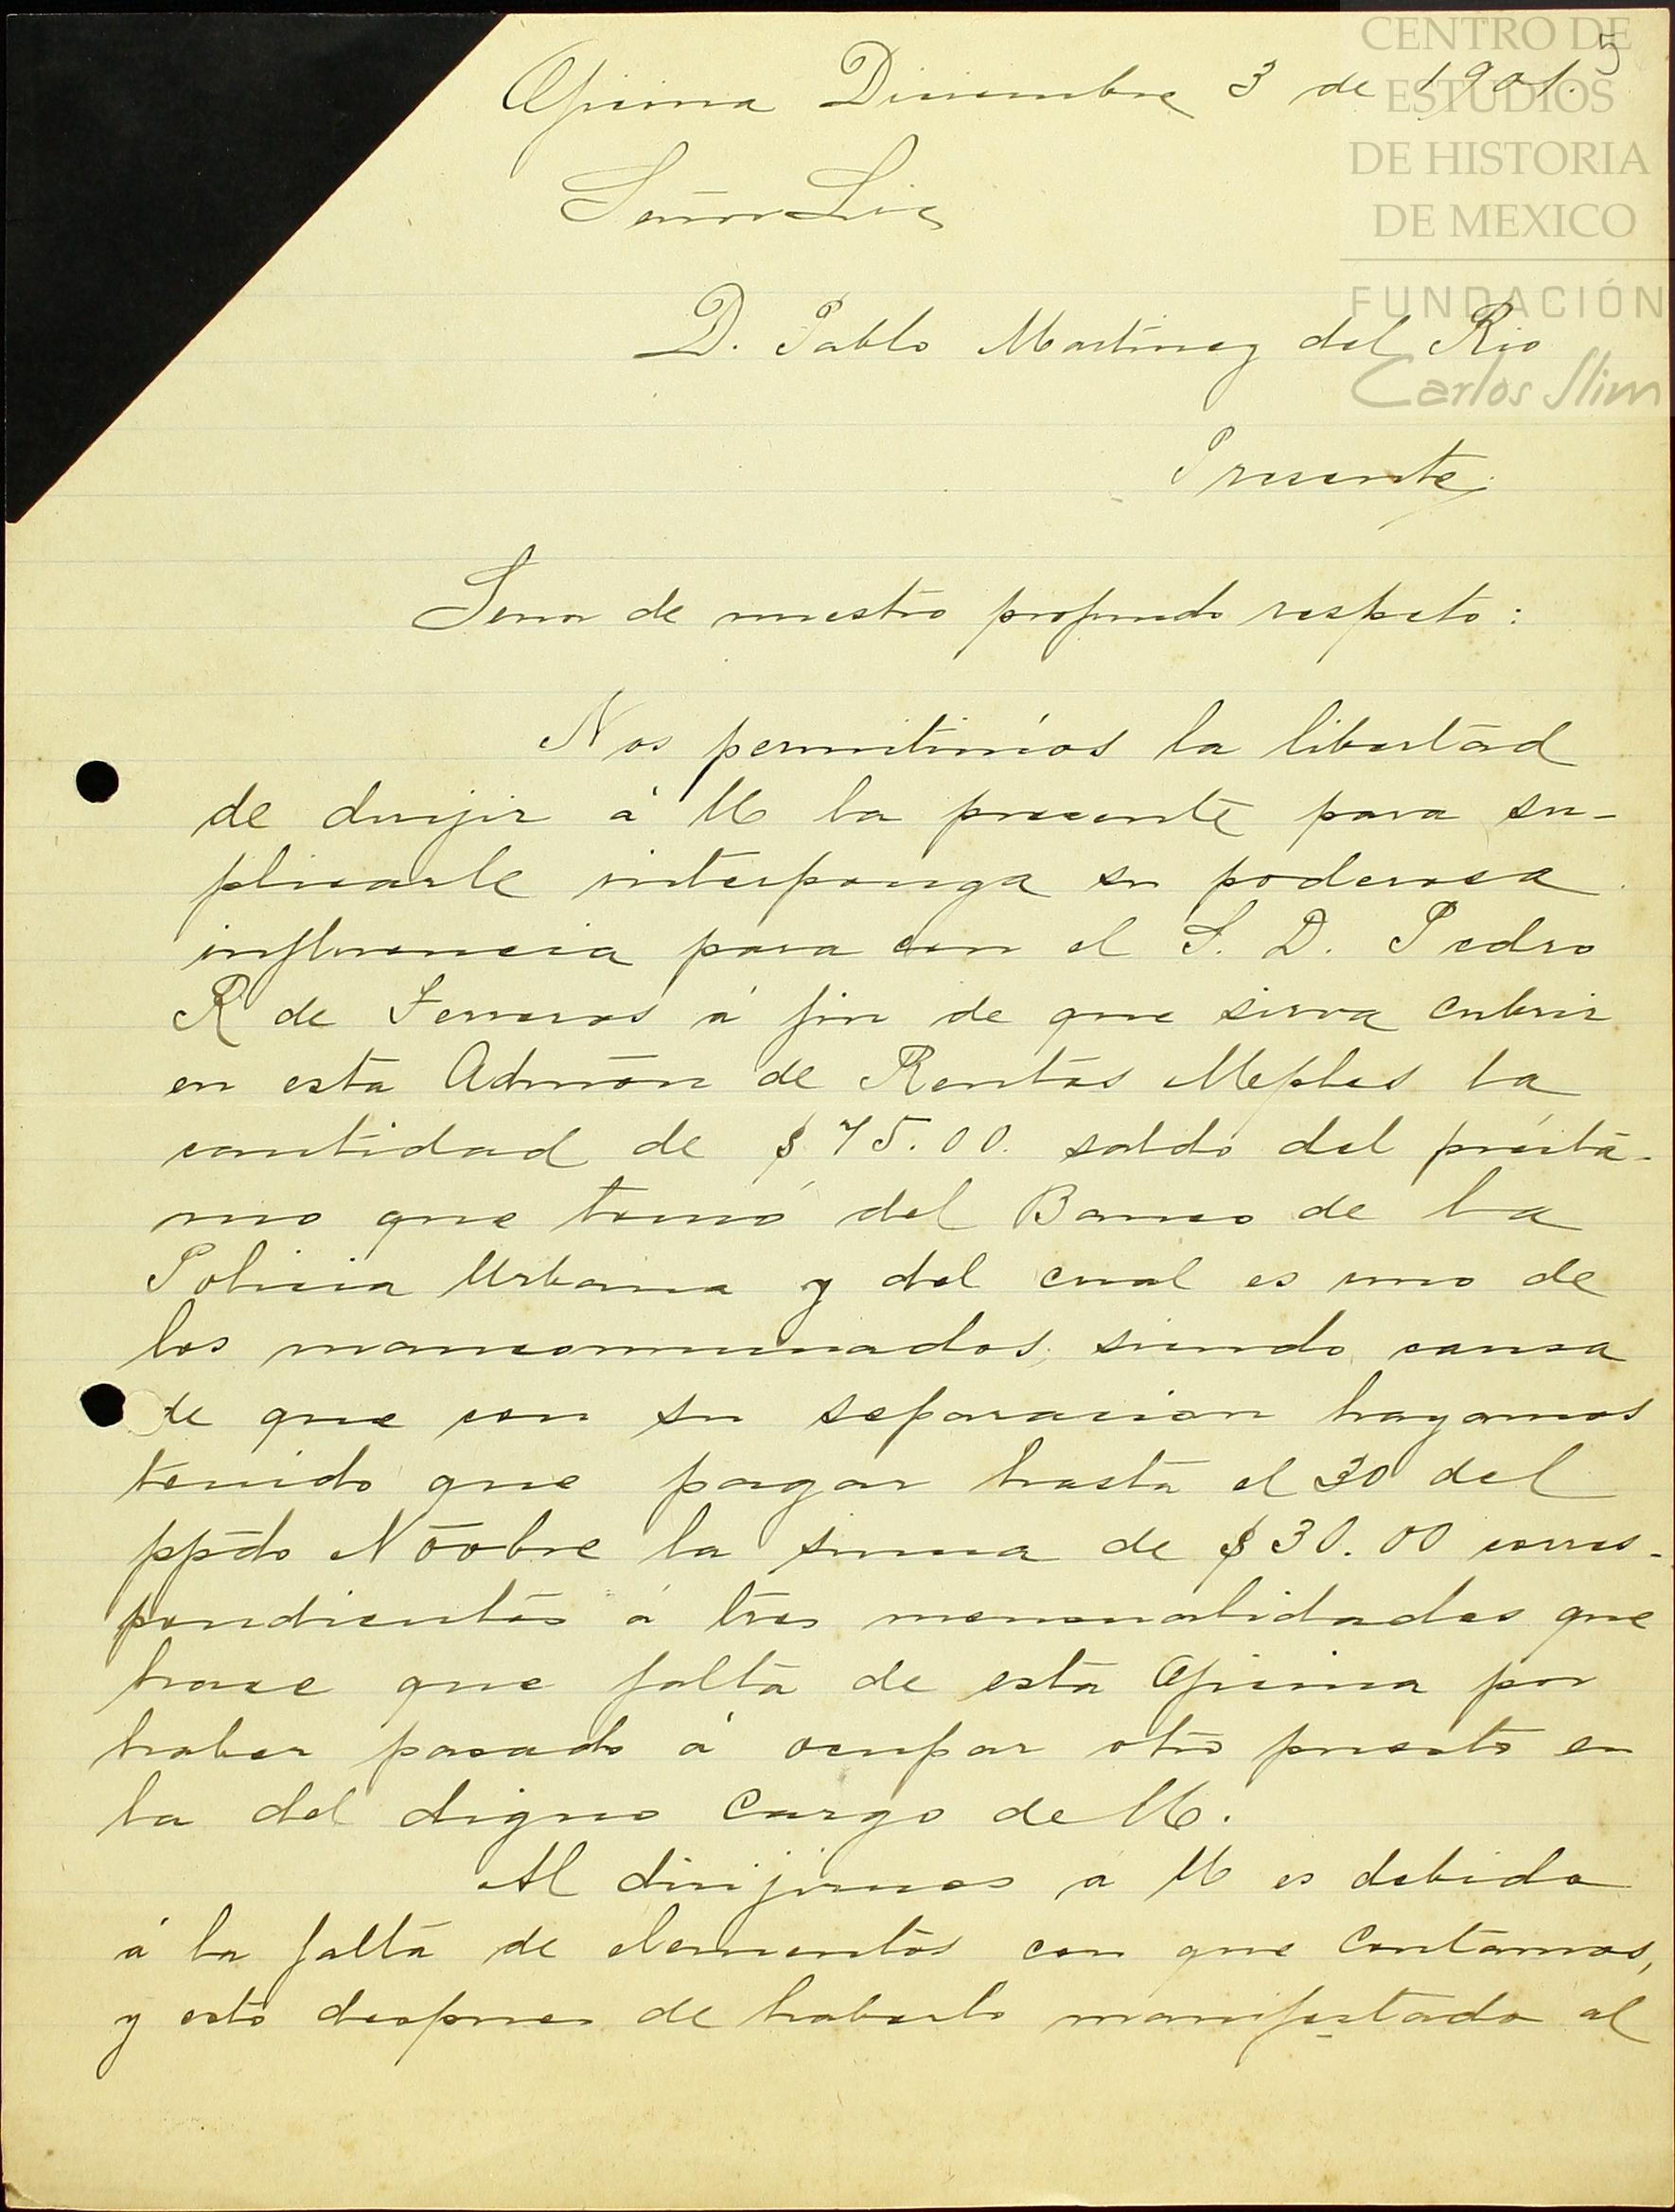 5
Oficina Diciembre 3 de 1901.
Señor Lic
D. Pablo Martinez del Rio
Presente.
Señor de nuestro profundo respeto:
Nos permitimos la libertad
de dirijir á U la presente para su-
plicarle interponga su poderosa
influencia para con el S. D. Pedro
R de Terreros á fin de que sirva cubrir
en esta Admon de Rentas Mples la
cantidad de $ 75.00. saldo del présta-
mo que tomó del Banco de la
Policia Urbana y del cual es uno de
los mancomunados, siendo causa
de que con su separacion hayamos
tenido que pagar hasta el 30 del
ppdo Novbre la suma de $ 30.00 corres-
pondientes á tres mensualidades que
hace que falta de esta Oficina por
haber pasado á ocupar otro puesto en
la del digno cargo de U.
Al dirijirnos á U es debido
á la falta de elementos con que contamos,
y esto despues de haberlo manifestado al
CENTRO DE
ESTUDIOS
DE HISTORIA
DE MEXICO
FUNDACIÓN
Carlos Slim